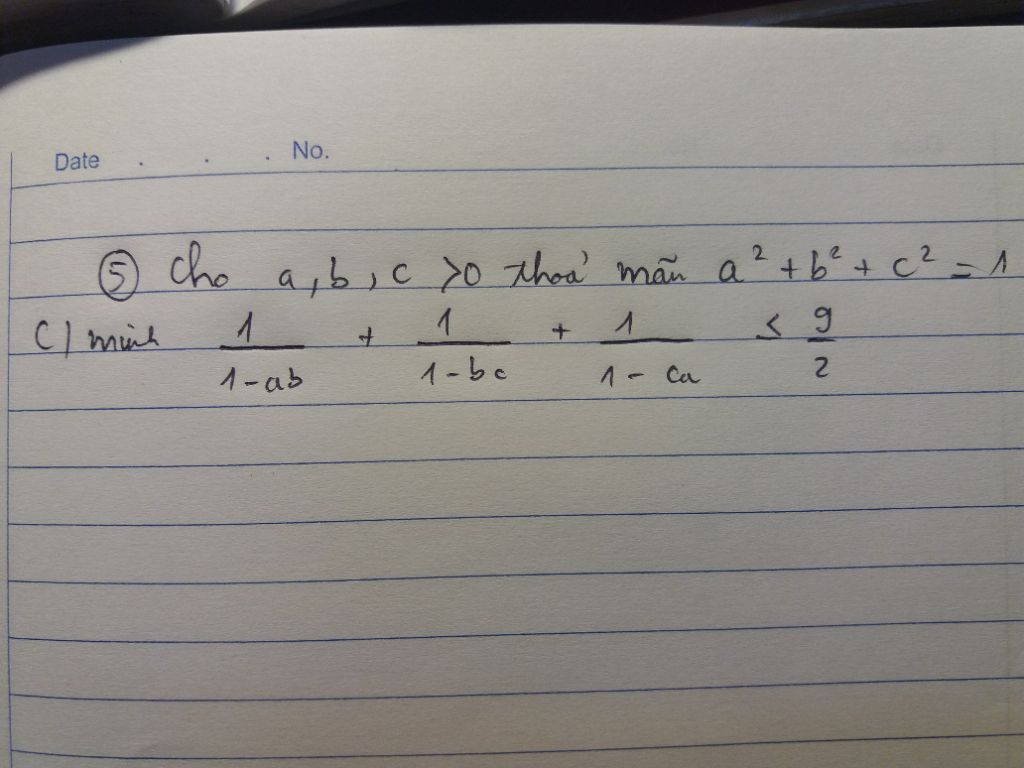 Date . . . No.
⑤ Cho a, b, c >0 thoả mãn a² + b² + c² = 1
C/minh 1/(1-ab) + 1/(1-bc) + 1/(1-ca) ≤ 9/2